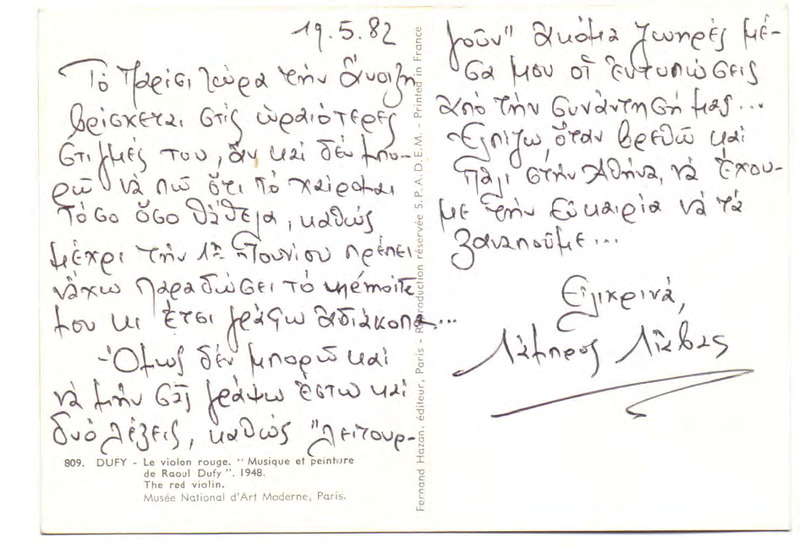 19.5.82
Τό Παρίσι τώρα τήν Ἄνοιξη
βρίσκεται στίς ὡραιότερες
στιγμές του, ἄν καί δέν μπο-
ρῶ νά πῶ ὅτι τό χαίρομαι
τόσο ὅσο θἄθελα, καθώς
μέχρι τήν 1η Ἰουνίου πρέπει
νἄχω παραδώσει τό mémoire
μου κι ἔτσι γράφω ἀδιάκοπα...
-Ὅμως δέν μπορῶ καί
νά μήν σᾶς γράψω ἔστω καί
δυό λέξεις, καθώς "λειτουρ-
γοῦν" ἀκόμα ζωηρές μέ-
σα μου οἱ ἐντυπώσεις
ἀπό τήν συνάντησή μας...
-Ἐλπίζω, ὅταν βρεθῶ καί
πάλι στήν Ἀθήνα, νά ἔχου-
με τήν εὐκαιρία νά τά
ξαναποῦμε...
Εἰλικρινά,
Λάμπρος Λιάβας
809. DUFY - Le violon rouge. "Musique et peinture
de Raoul Dufy". 1948.
The red violin.
Musée National d'Art Moderne, Paris.
Fernand Hazan, éditeur, Paris - Reproduction réservée S.P.A.D.E.M. - Printed in France